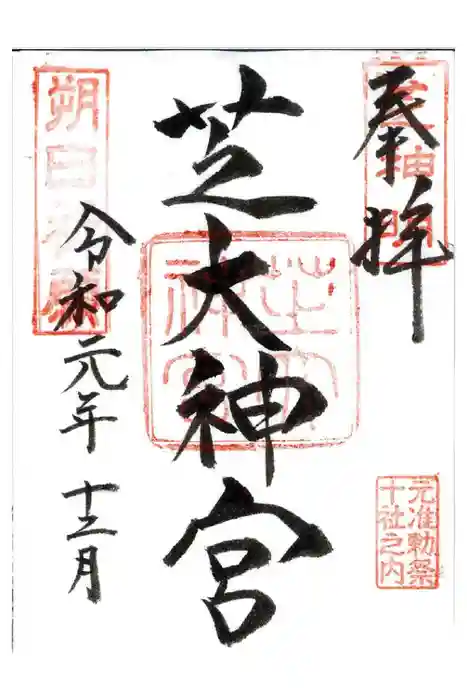 奉拝
芝大神宮
元准勅祭
十社之内
朔日
令和元年十二月